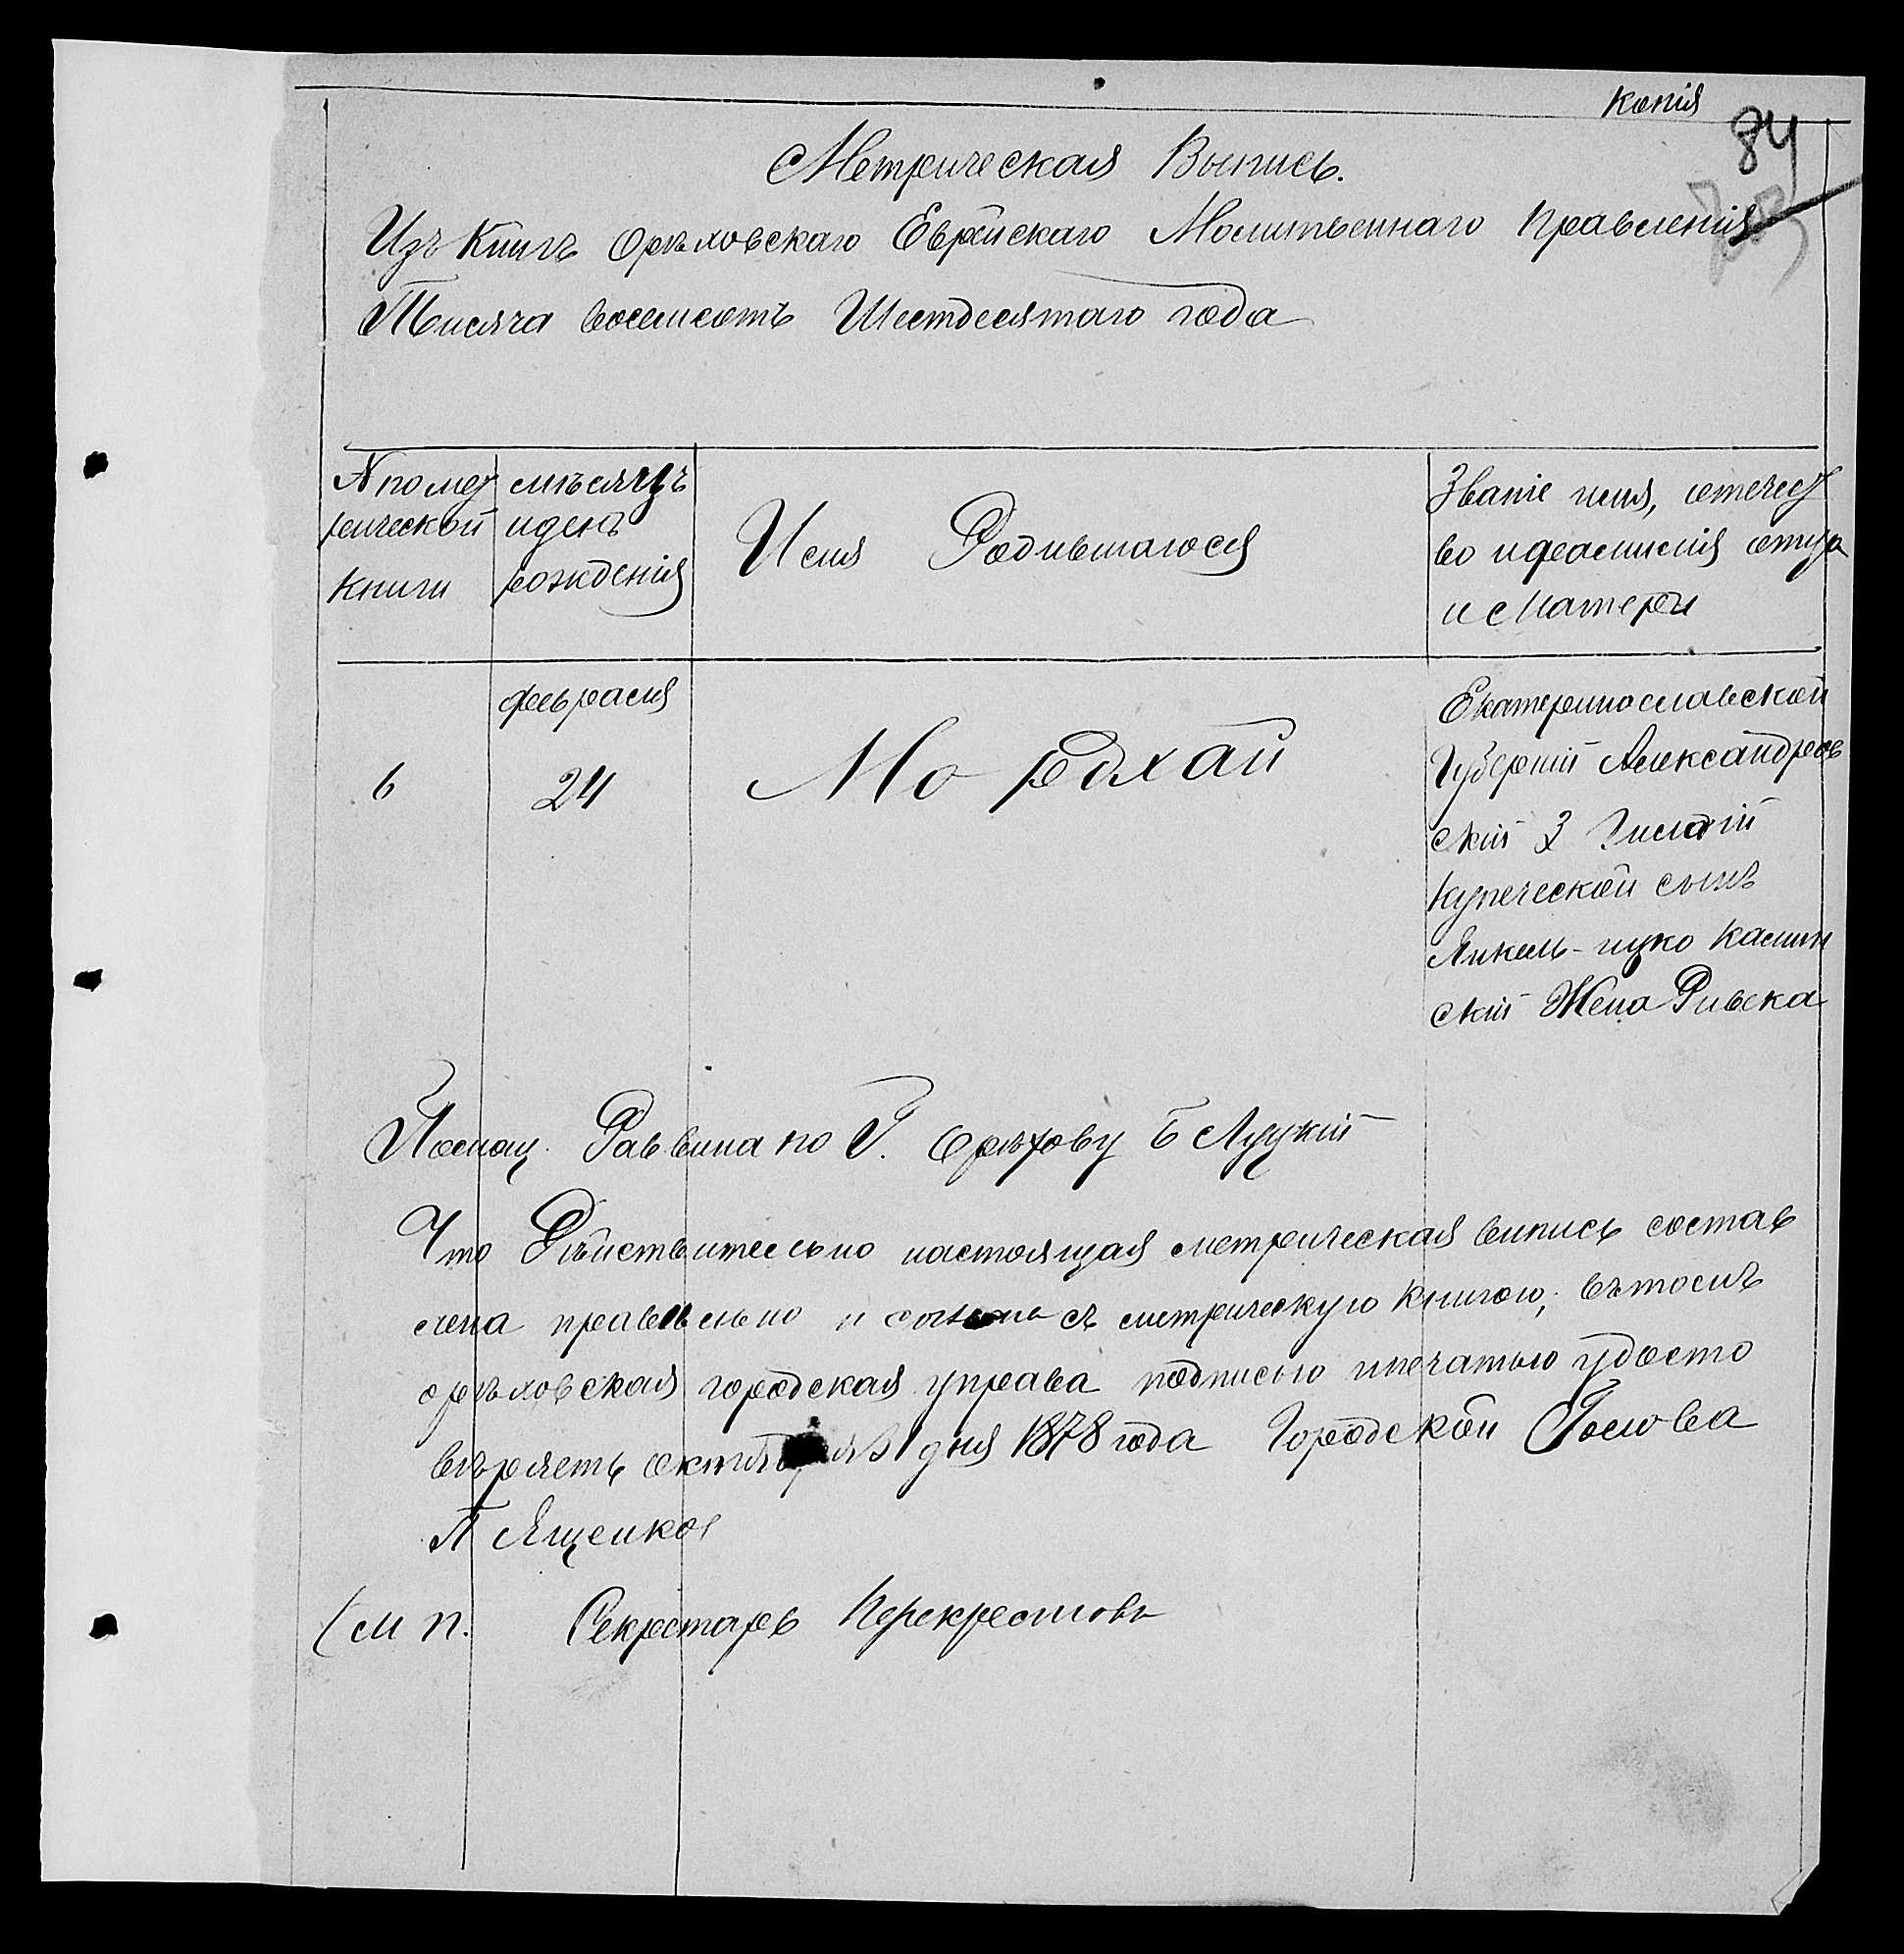 копія
84
Метрическая Выпись.
Изъ Книгъ Орѣховскаго Еврейскаго Молитвеннаго Правленія
Тисяча восемсотъ Шестдесятаго года
№ по мет
рической
книги
мѣсяцъ
и день
рожденія
Имя Родившагося
Званіе имя, отечест
во и фамилія отца
и Матери
6
февраля
24
Мордхай
Екатеринославской
Губерніи Александров
скій 3 Гилдіи
купеческой сынъ
Янкель-ицко Калин
скій Жена Ривека
Помощ. Раввина по Г. Орѣхову Б Луцкій
Что Дѣйствительно настоящая метрическая випись состав
лена правильно и съ метрическую книгою, въ томъ
орѣховская городская управа подписью и печатью удосто
вѣряетъ октября 31 дня 1878 года Городской Голова
П Ященко
(м п. Секретарь Перекрестовъ